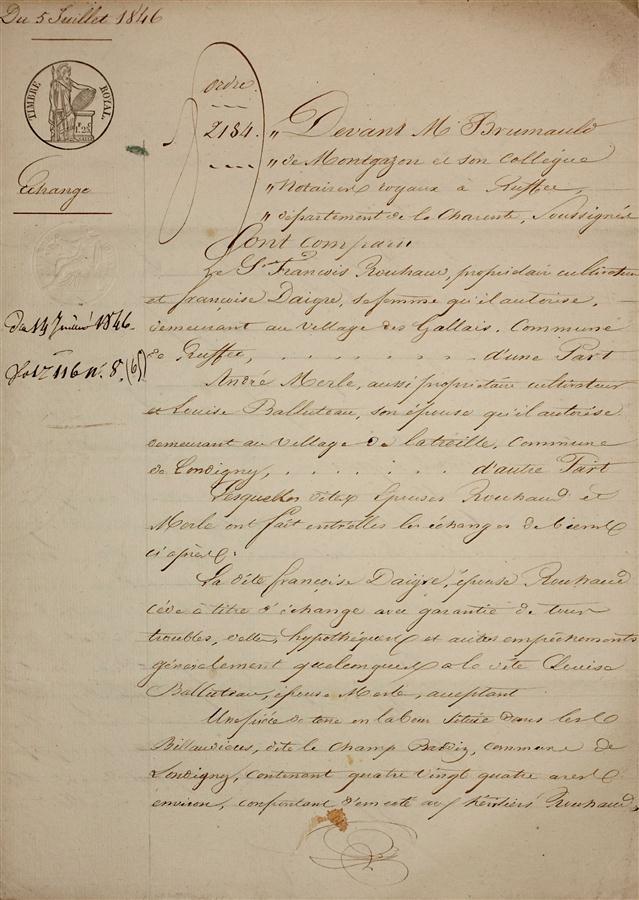 Du 5 Juillet 1846
TIMBRE ROYAL
ordre
2184.
Echange
du 14 Juillet 1846.
fo 116 n. 8.
" Devant Me Brumauld
" de Montgazon et son collègue
" Notaires royaux à Ruffec,
" département de la Charente, Soussignés
Sont comparu
Le Sr François Rouhaud, propriétaire cultivateur
et françoise Daigre, sa femme qu'il autorise,
demeurant au village des Gallais, Commune
de Ruffec, . . . . . . . . d'une Part
André Merle, aussi propriétaire cultivateur
et Louise Balluteau, son épouse qu'il autorise
demeurant au village de Latreille, Commune
de Londigny, . . . . . . . d'autre Part
Lesquelles dites Epouses Rouhaud et
Merle ont fait entr'elles les échanges de biens
ci après.
La dite françoise Daigre, épouse Rouhaud
cède à titre d'échange avec garantie de tous
troubles, dettes, hypothèques et autres empêchements
généralement quelconques a la dite Louise
Balluteau, épouse Merle, acceptant
Une pièce de terre en labour située dans les
dite le Champ commune de
Londigny, contenant quatre vingt quatre ares
environ, confrontant d'un côté aux héritiers Rouhaud,